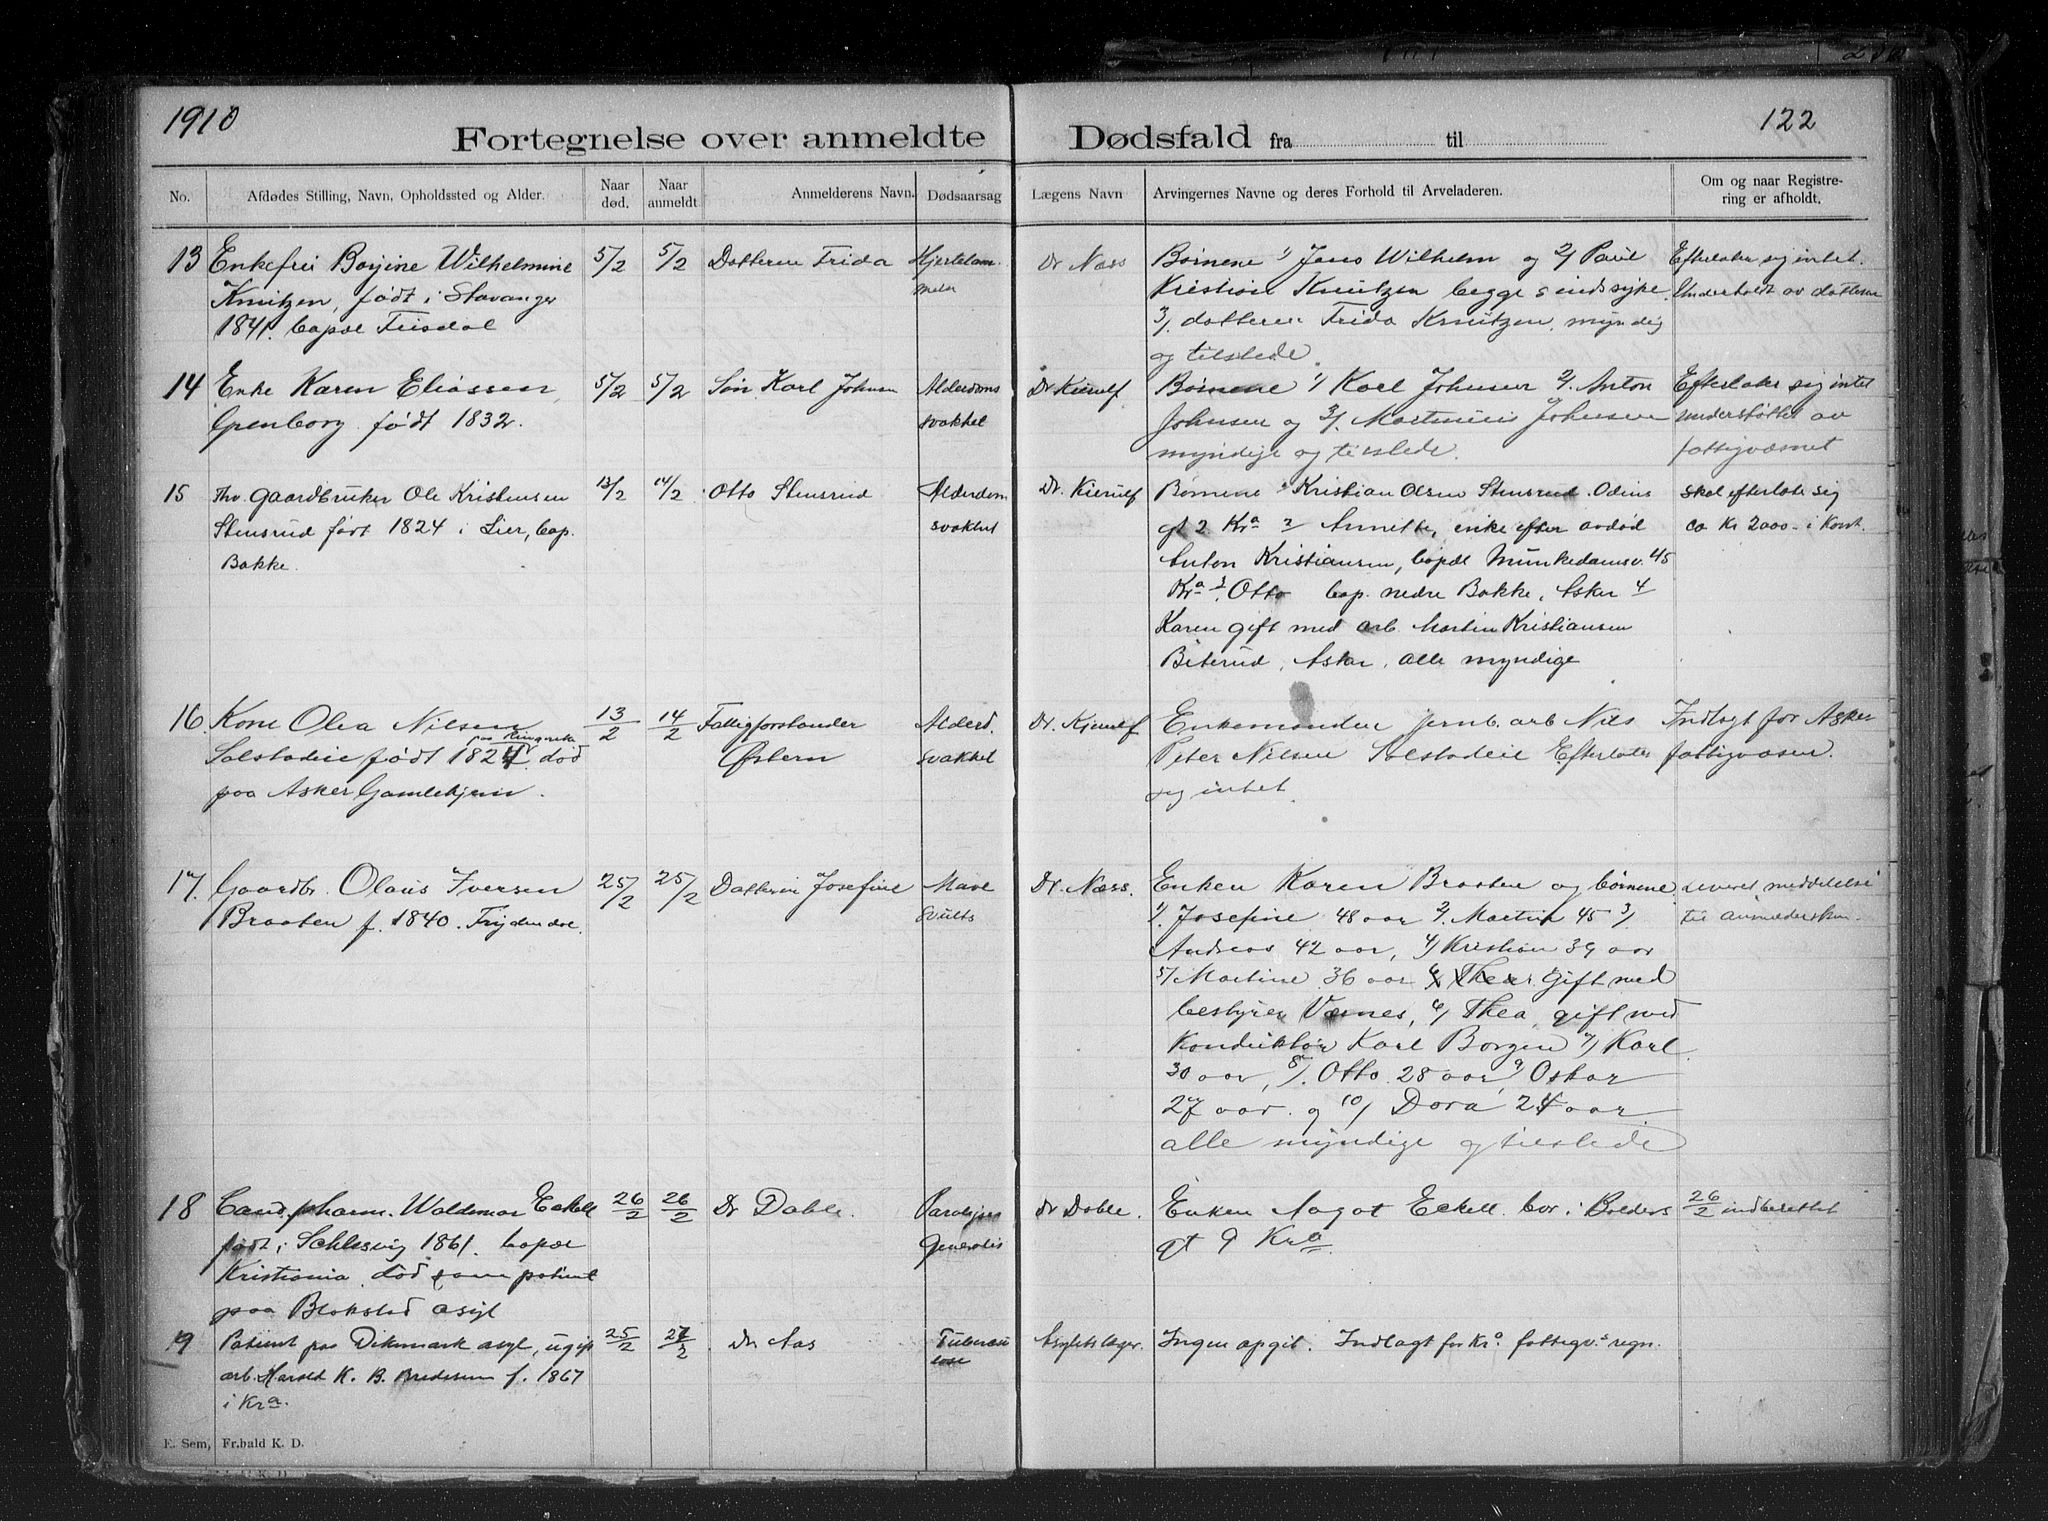 1910
122
Fortegnelse over anmeldte Dødsfald fra til
No.
Afdødes Stilling, Navn, Opholdssted og Alder.
Naar død.
Naar anmeldt.
Anmelderens Navn.
Dødsaarsag
Lægens Navn
Arvingernes Navne og deres Forhold til Arveladeren.
Om og naar Registre-
ring er afholdt.
13 Enkefru Wilhelmine
Knutzen, født i Stavanger
1841. bopæl
5/2 5/2 Datteren Frida
Dr Næss
Børnene 1/ Jens Wilhelm og 2/ Paul
Kristian Knutzen begge sindsyke
3/. datteren Frida Knutzen, myndig
og tilstede.
Efterlater sig intet.
Underholdt av datteren
14 Enke Karen Eliassen,
født 1832.
5/2 5/2 Søn Karl Johnsen
Alderdoms
svakhet
Dr Kierulf
Børnene 1/ Karl Johnsen 2/. Anton
Johnsen og 3/. Johnsen
myndige og tilstede.
Efterlater sig intet
understøttet av
fattigvæsnet
15 Fhv. gaardbruker Ole Kristensen
Stensrud født 1824 i Lier, bop.
Bakke.
13/2 14/2 Otto Stensrud
Alderdom
svakhet
Dr. Kierulf
Børnene 1 Kristian Olsen Stensrud. Odins
gt 2 Kra 2 Annette, enke efter avdød
Anton Kristiansen, bopæl Munkedamsv. 45
Kra 3. Otto bop. nedre Bakke, Asker 4
Karen gift med arb. Martin Kristiansen
Biterud, Asker, alle myndige
skal efterlate sig
ca Kr 2000.- i kont.
16. Kone Olea Nilsen
paa Ringerike
født 1824. død
paa Asker Gamlehjem.
13/2 14/2 Fattigforstander
Østern
Alderd.
svakhet
Dr. Kjerulf
Enkemanden jernb. arb Nils
Peter Nilsen Efterlater
sig intet.
Indlagt for Asker
fattigvæsen.
17. Gaardbr. Olaus Iversen
Braaten f. 1840. Frydendal.
25/2 25/2 Datteren Josefine
Mave
svulst
Dr. Næss.
Enken Karen Braaten og børnene
1/. Josefine 48 aar 2/. Martin 45 3/
Andreas 42 aar, 4/ Kristian 39 aar
5/ Martine 36 aar gift med
bestyrer Værnes, 6/ Thea, gift med
Konduktør Karl Borgen 7/ Karl
30 aar, 8/. Otto 28 aar, 9/ Oskar
27 aar. og 10/ Dora 24 aar
alle myndige og tilstede
Leveret meddelelse
til anmelderskun.
18 Cand. pharm. Waldemar Eckell
født i Schlesvig 1861. bopæl
Kristiania død som patient
paa Blakstad asyl
26/2 26/2 Dr Dahle.
Paralysis
Generalis
Dr Dahle.
Enken Aagot Eckell. bor i Balders
gt 9 Kra
26/2 indberettet
19 Patient paa Dikemark asyl, ugift
arb. Harald K. B. Bredesen f. 1867
i Kra.
25/2 27/2 Dr. Aas
Tuberku
lose
Asylets læger.
Ingen opgit. Indlagt for Kra fattigv.s regn.
E. Sem, Fr.hald K. D.